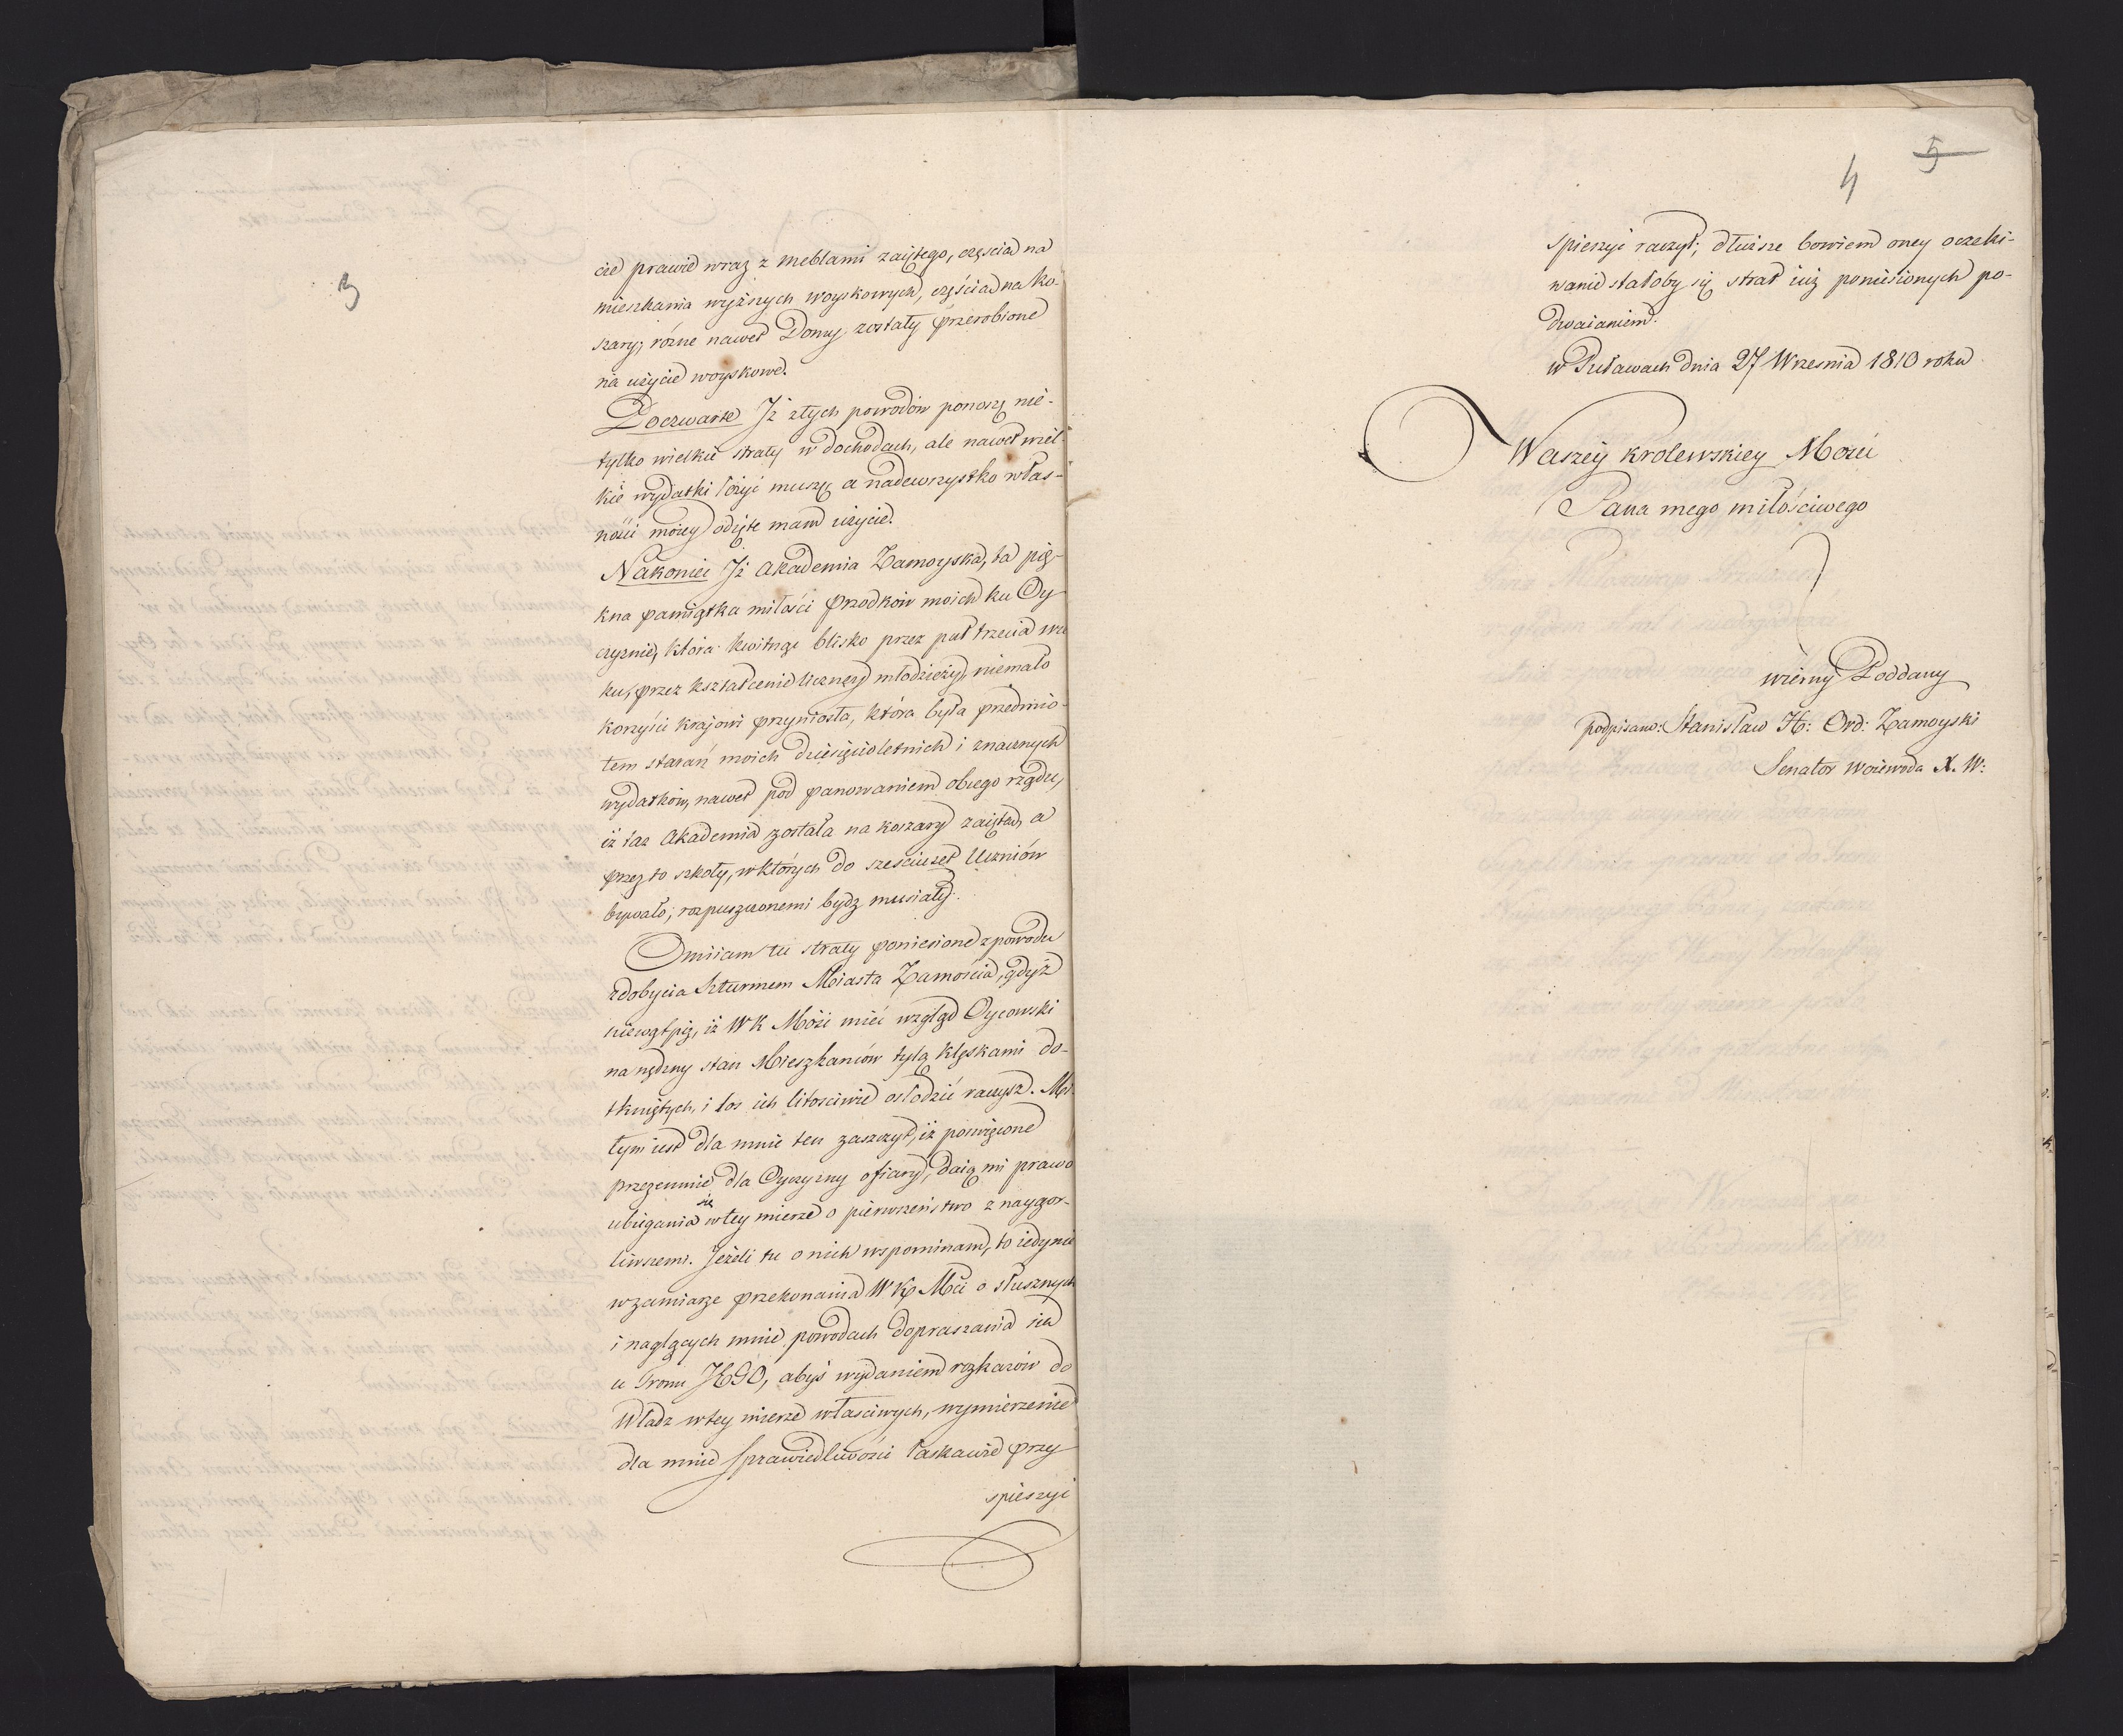 3
cie prawie wraz z meblami zaiętego, częścia na
mieszkania wyższych woyskowych, częścia na ko-
szary, różne nawet Domy zostały przerobione
na użycie woyskowe.
Poczwarte Iż z tych powodów ponoszę nie-
tylko wielkie straty w dochodach, ale nawet wiel-
kie wydatki łożyć muszę, a nadewszystko włas-
ności moiey odięte mam użycie.
Nakoniec Iż Akademia Zamoyska, ta pię-
kna pamiątka miłości Przodków moich ku Oy-
czyznie, która kwitnąc blisko przez puł trzecia wie
ku, przez kształcenie Uczącey młodzieży, niemało
korzyści krajowi przyniosła, która była przedmio-
tem starań moich dziesięcioletnich i znacznych
wydatków, nawet pod panowaniem obcego rządu,
iż taż Akademia została na koszary zaięta, a
przez to szkoły, w których do sześciuset Uczniów
bywało, rozpuszczonemi bydz musiały.
Omiiam tu straty poniesione z powodu
zdobycia Szturmem Miasta Zamościa, gdyż
niewątpię, iż WK Mość mieć wzgląd Oycowski
na nędzny stan Mieszkanców tylą klęskami do-
tkniętych, i los ich litościwie osłodzić raczysz. Mi-
łym iest dla mnie ten zaszczyt, iż poswięcone
przezemnie dla Oyczyzny ofiary, daią mi prawo
ubiegania się w tey mierze o pierwszeństwo z naygor-
liwszemi. Jeżeli tu o nich wspominam, to iedynie
w zamiarze przekonania WKMci o słusznych
i naglących mnie powodach dopraszania sie
u Tronu JEGO, abyś wydaniem rozkazów do
Władz w tey mierze właściwych, wymierzenie
dla mnie sprawiedliwości łaskawie przy
spieszyć
4 5
spieszyć raczył; dłuższe bowiem oney oczeki-
wanie stałoby się strat iuż poniesionych po-
dwaianiem.
w Puławach dnia 27 Wrzesnia 1810 roku
Waszey Krolewskiey Mości
Pana mego miłościwego
wierny Poddany
podpisano: Stanisław H: Ord: Zamoyski
Senator Woiewoda X. W: